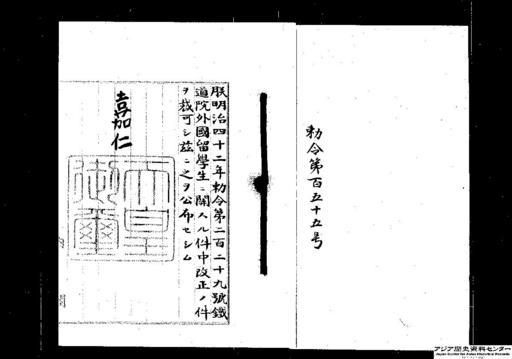 勅令第百五十五号
朕明治四十二年勅令第二百二十九號鐵
道院外國留學生ニ關スル件中改正ノ件
ヲ裁可シ茲ニ之ヲ公布セシム
嘉仁
天皇
御璽
アジア歴史資料センター
Japan Center for Asian Historical Records